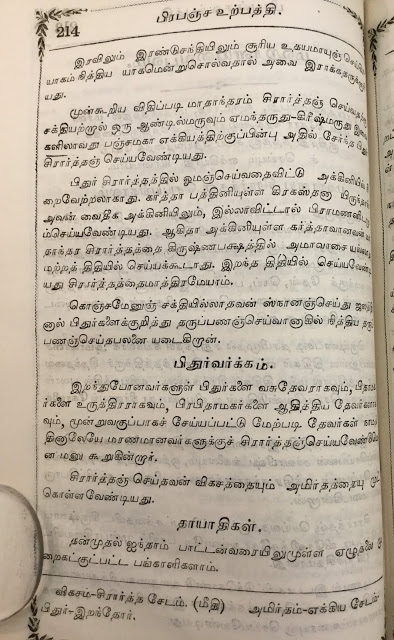 பிரபஞ்ச உற்பத்தி.
214
இரவிலும் இரண்டுசந்தியிலும் சூரிய உதயமாயுஞ்செய்
யாகம் நித்திய யாகமென்றுசொல்வதால் அவை இராக்க
யது.
முன்கூறிய விதிப்படி மாதாந்தரம் சிரார்த்தஞ் செய்வ
சக்தியற்றால் ஒரு ஆண்டில்மருவும் ஏமந்தருது-கிரீஷ்மருது
களிலாவது பஞ்சமகா எக்கியத்திற்குப்பின்பு அதில் சேர்ந்த
சிரார்த்தஞ் செய்யவேண்டியது.
பிதுர் சிரார்த்தத்தில் ஓமஞ்செய்வதைவிட்டு அக்கினியில்
றைவேற்றலாகாது. கர்த்தா பத்தினியுள்ள கிரகஸ்தனா யிருந்தா
அவன் வைதீக அக்கினியிலும், இல்லாவிட்டால் பிராமணனிட
ம்செய்யவேண்டியது. ஆகிதா அக்கினியுள்ள கர்த்தாவானவன்
தாந்தர சிரார்த்தத்தை கிருஷ்ணபக்ஷத்தில் அமாவாசை யல்லா
மற்றத் திதியில் செய்யக்கூடாது. இறந்த திதியில் செய்யவேண்டி
யது சிரார்த்தத்தைமாத்திரமேயாம்.
கொஞ்சமேனுஞ் சக்தியில்லாதவன் ஸ்நானஞ்செய்து ஜல
னால் பிதுர்களைக்குறித்து தருப்பணஞ்செய்வானாகில் நித்திய
பணஞ்செய்தபலனை யடைகிறான்.
பிதுர்வர்க்கம்.
இறந்துபோனவர்களுள் பிதுர்களை வசுதேவராகவும், பிதாம
ர்களை உருத்திரராகவும், பிரபிதாமகர்களை ஆதித்திய தேவர்களா
வும், மூன்றுவகுப்பாகச் சேயப்பட்டு மேற்படி தேவர்கள்
தினாலேயே மரணமானவர்களுக்குச் சிரார்த்தஞ்செய்யவேண்டுமெ
ன மனு கூறுகின்றார்.
சிரார்த்தஞ் செய்தவன் விகசத்தையும் அமிர்தத்தையு
கொள்ளவேண்டியது.
தாயாதிகள்.
தன்முதல் ஐந்தாம் பாட்டன்வரையிலுமுள்ள ஏழுதலை
றைகட்குட்பட்ட பங்காளிகளாம்.
விகசம்-சிரார்த்த சேடம். (மீதி) அமிர்தம்-எக்கிய சேடம்-
பிதுர்-இறந்தோர்.